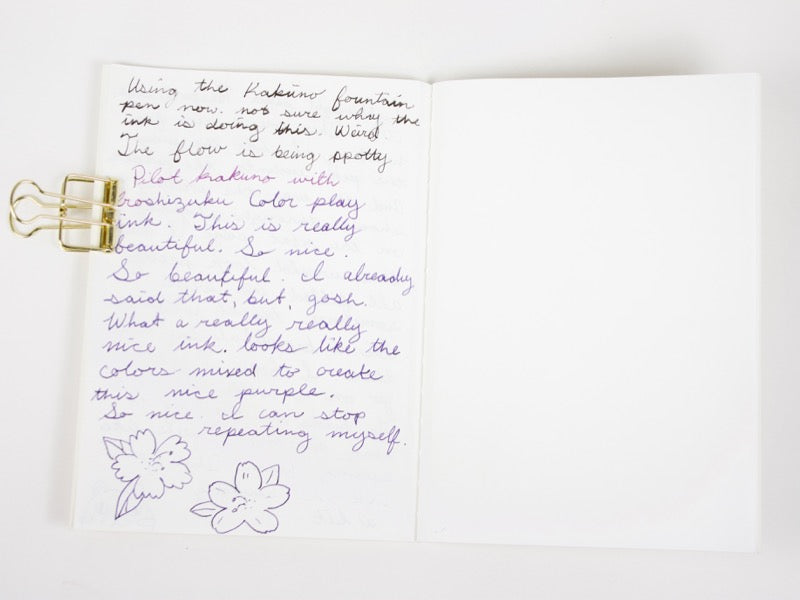 Using the Kakuno fountain
pen now. not sure why the
ink is doing this. Weird
The flow is being spotty
Pilot Kakuno with
Iroshizuku Color play
ink. This is really
beautiful. So nice.
So beautiful. I already
said that, but, gosh.
What a really really
nice ink. looks like the
colors mixed to create
this nice purple.
So nice. I can stop
repeating myself.